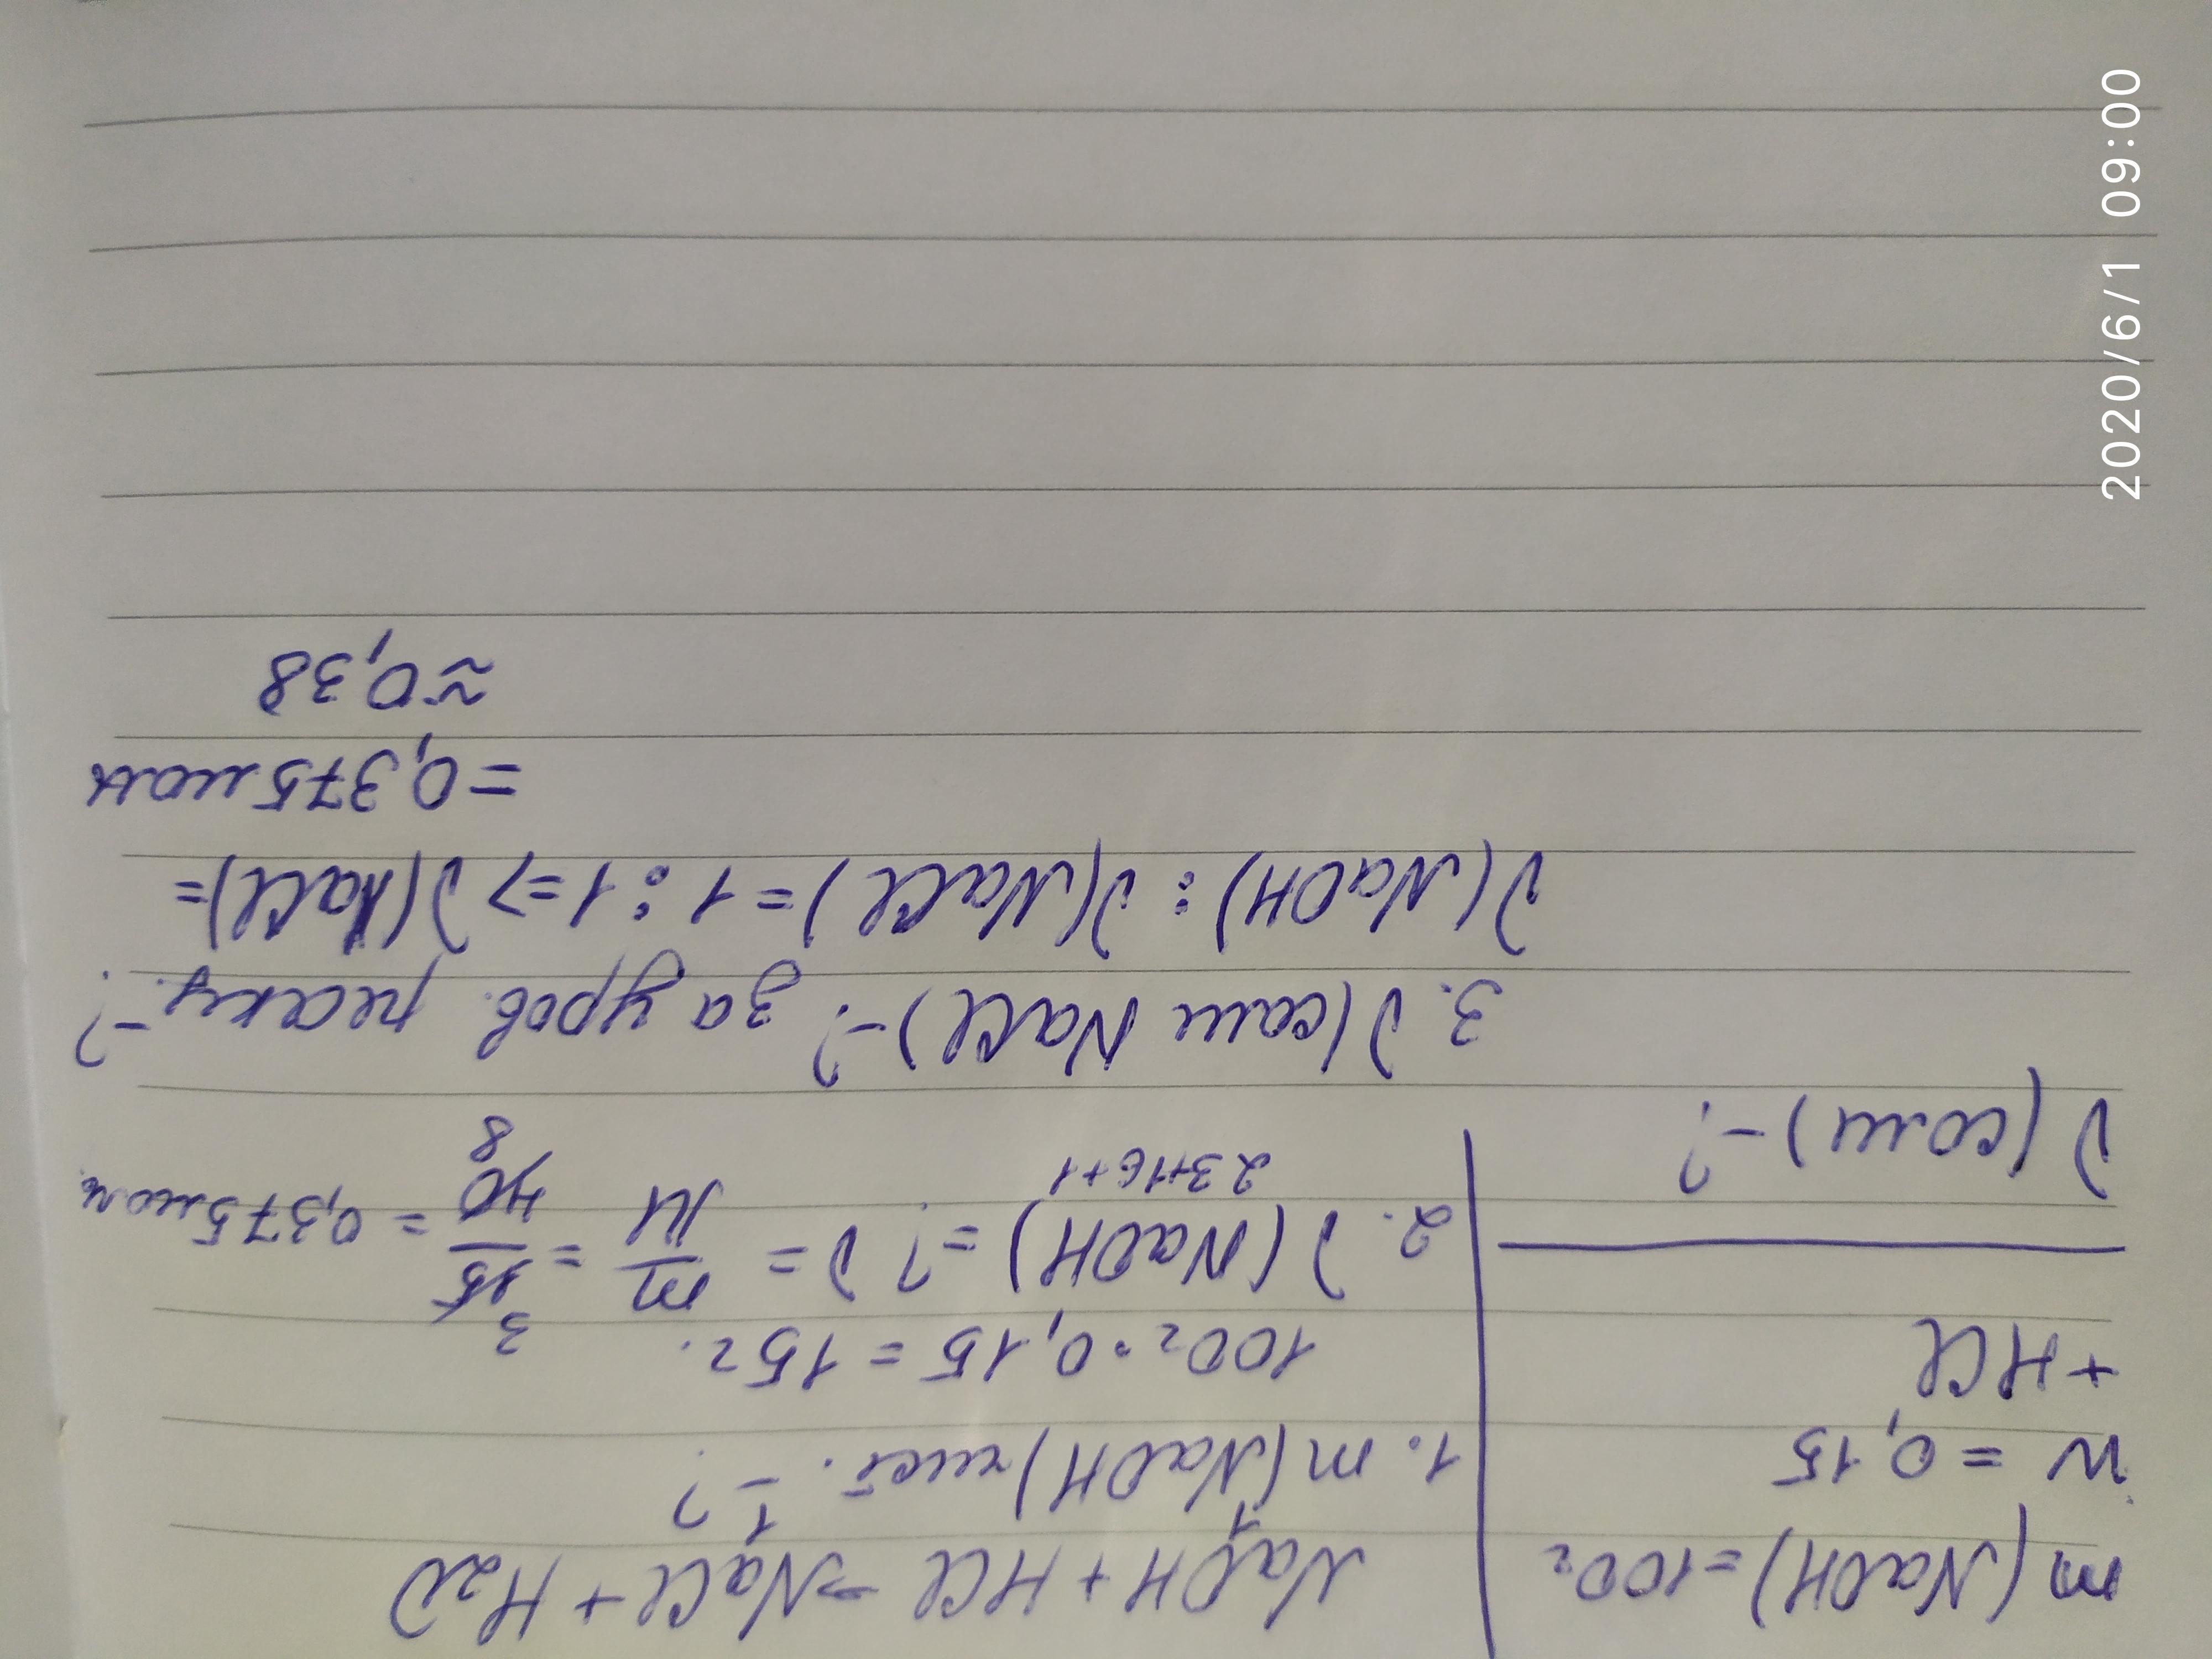 m(NaOH)=100г
w = 0,15
+HCl
ν(соли)-?
NaOH + HCl → NaCl + H2O
1 1
1. m(NaOH)чист. - ?
100г · 0,15 = 15г.
2. ν(NaOH) =? ν = m/M = 15/40 = 0,375 моль
3
8
23+16+1
3. ν(соли NaCl)-? за уров. реакц. -?
ν(NaOH) : ν(NaCl) = 1 : 1 => ν(NaCl)=
=0,375 моль
≈0,38
2020/6/1 09:00